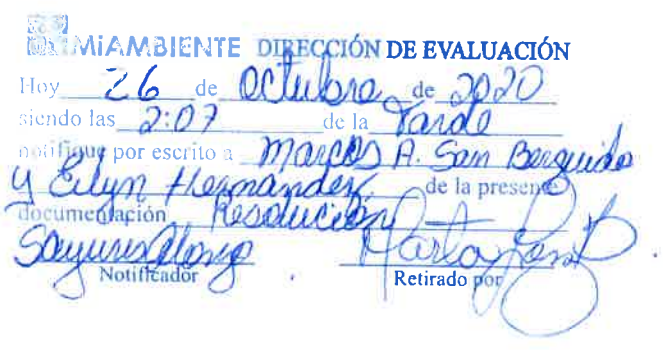 MiAMBIENTE DIRECCIÓN DE EVALUACIÓN
Hoy 26 de Octubre de 2020
siendo las 2:07 de la Tarde
notifique por escrito a Marcos A. San Berguido
y Eilyn Hernandez de la presente
documentación Resolución
Sayuris Alonzo
Notificador Retirado por